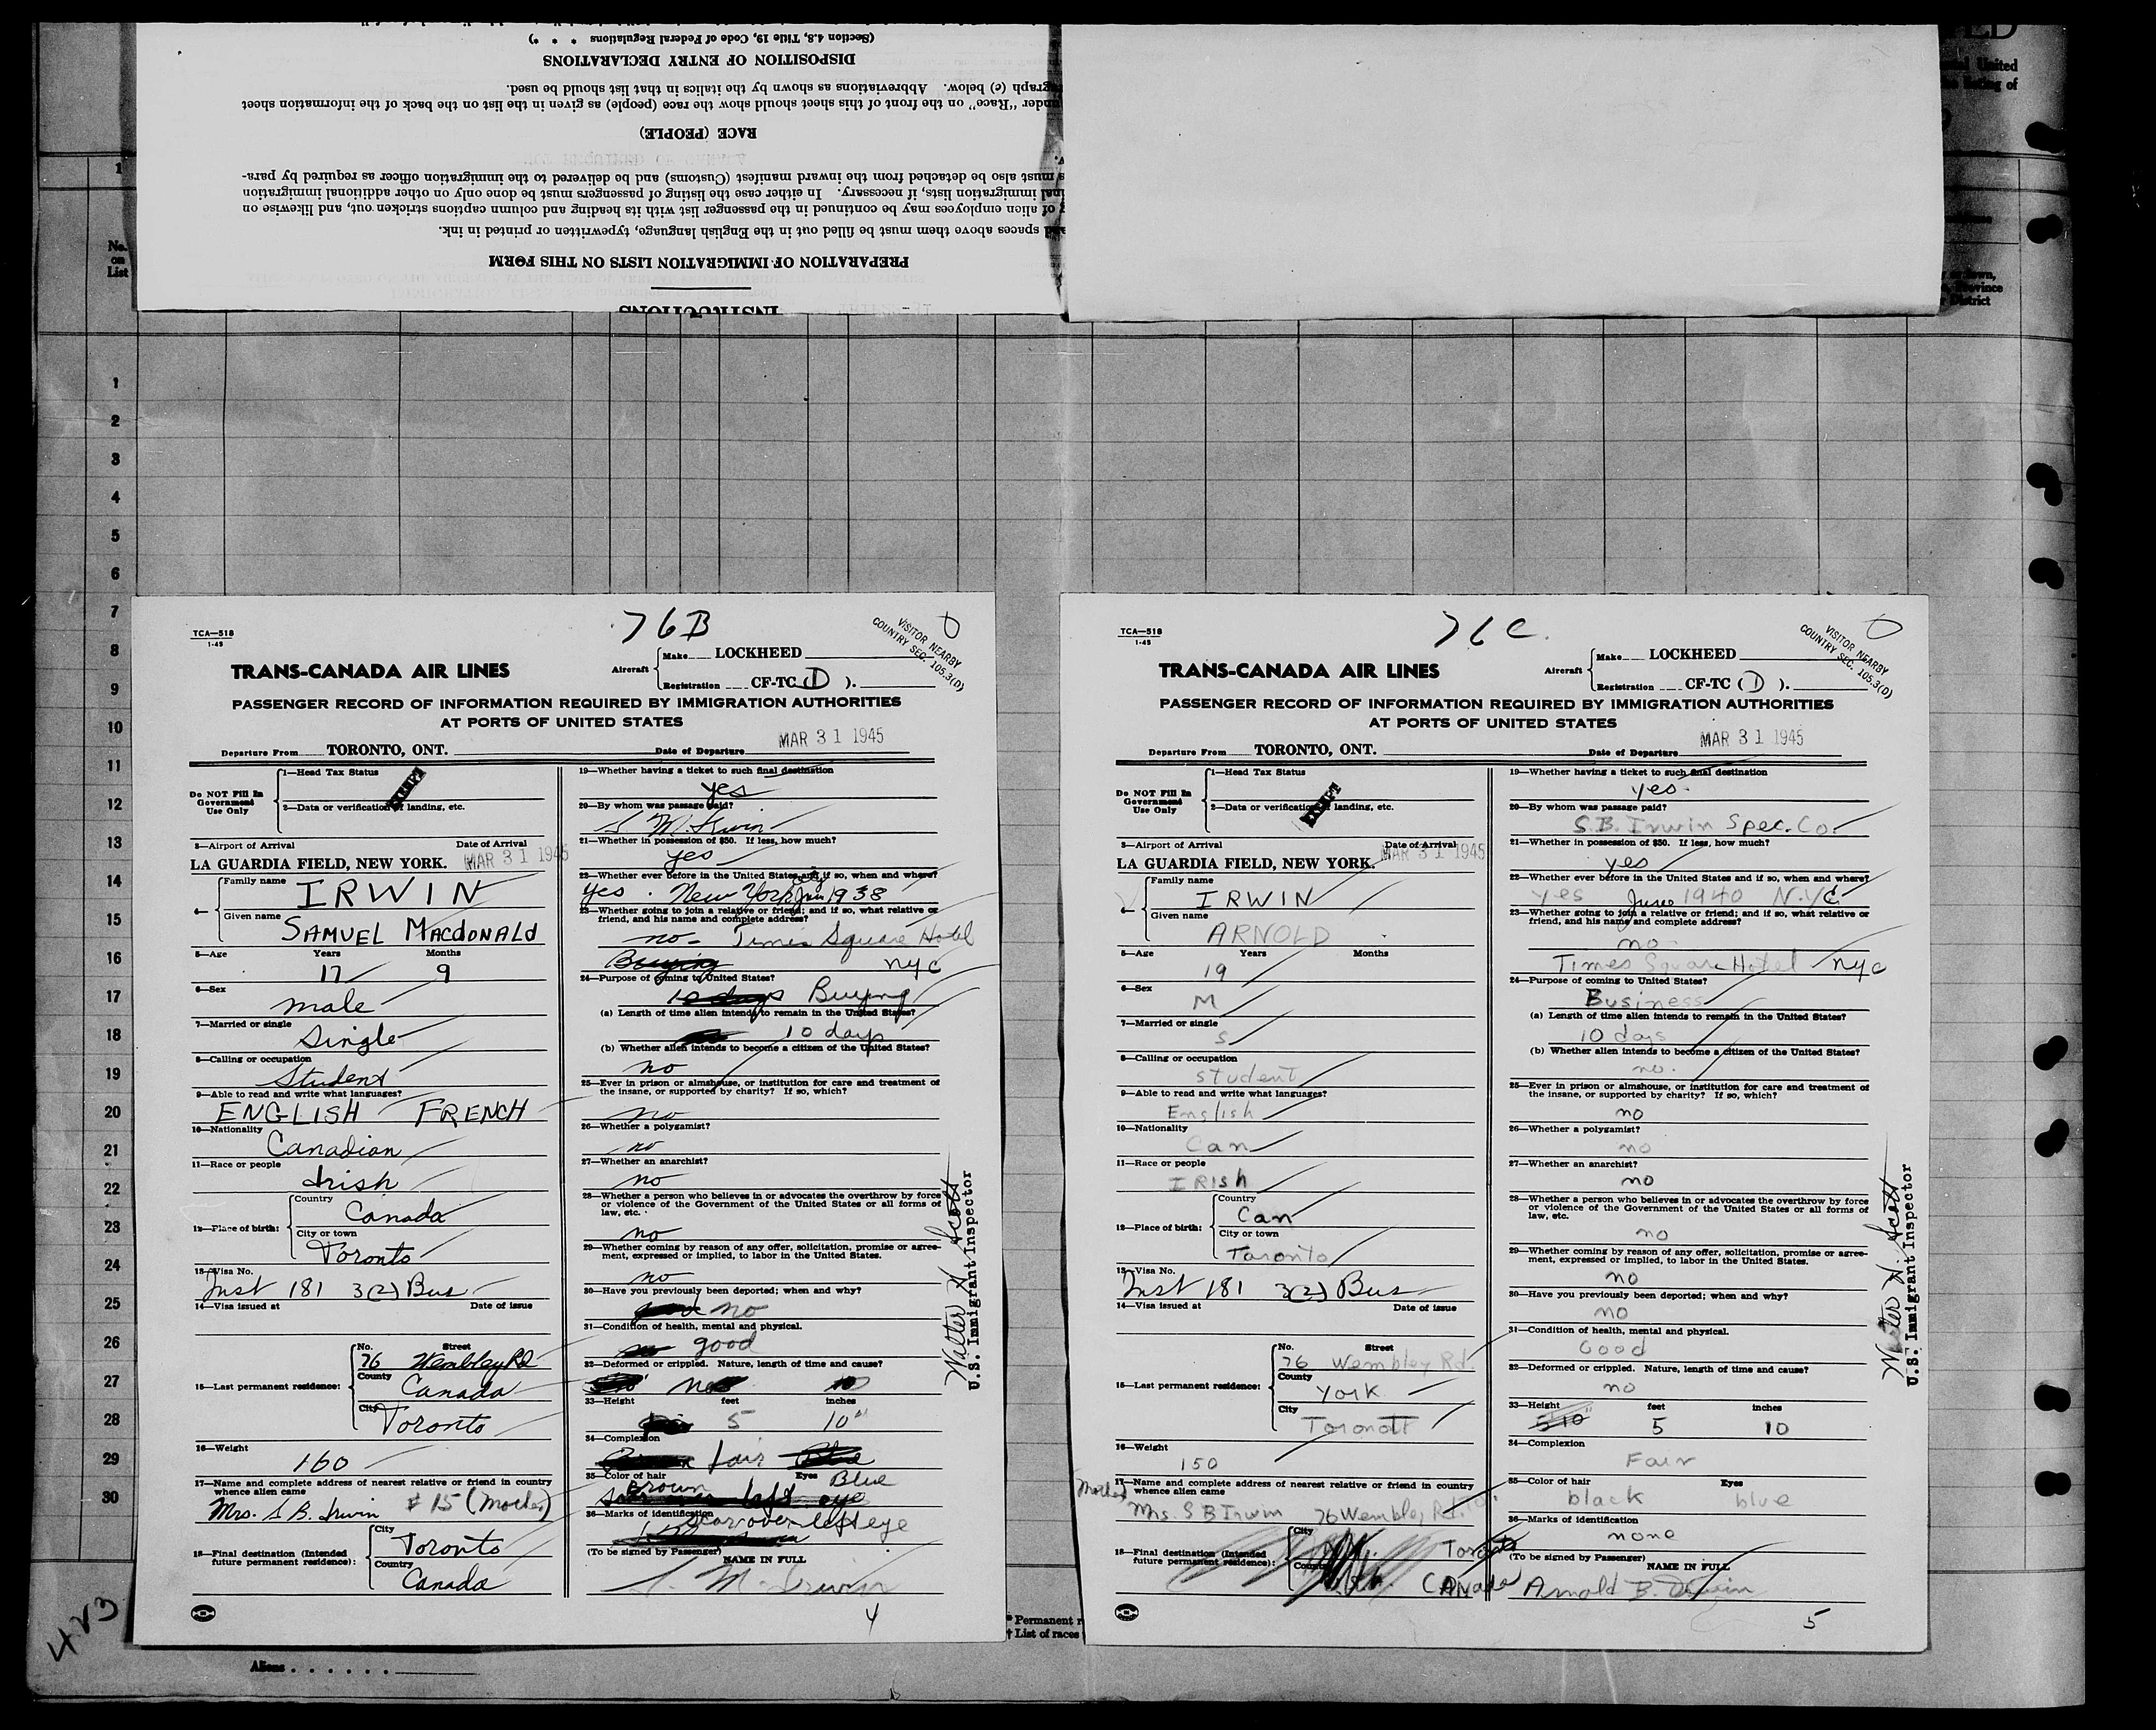 INSTRUCTIONS
PREPARATION OF IMMIGRATION LISTS ON THIS FORM
spaces above them must be filled out in the English language, typewritten or printed in ink.
of alien employees may be continued in the passenger list with its heading and column captions stricken out, and likewise on
immigration lists, if necessary. In either case the listing of passengers must be done only on other additional immigration
must also be detached from the inward manifest (Customs) and be delivered to the immigration officer as required by para-
RACE (PEOPLE)
under "Race" on the front of this sheet should show the race (people) as given in the list on the back of the information sheet
(c) below. Abbreviations as shown by the italics in that list should be used.
DISPOSITION OF ENTRY DECLARATIONS
(Section 4.8, Title 19, Code of Federal Regulations * * *)
United
of
Province
District
1
No.
on
List
1
2
3
4
5
6
7
8
9
10
11
12
13
14
15
16
17
18
19
20
21
22
23
24
25
26
27
28
29
30
76B
TCA—518
1-45
VISITOR NEARBY
COUNTRY SEC. 105.3(D)
TRANS-CANADA AIR LINES
Aircraft
Make LOCKHEED
Registration CF-TC (D).
PASSENGER RECORD OF INFORMATION REQUIRED BY IMMIGRATION AUTHORITIES
AT PORTS OF UNITED STATES
Departure From TORONTO, ONT. Date of Departure MAR 31 1945
Do NOT Fill In
Government
Use Only
1—Head Tax Status
EXEMPT
2—Data or verification of landing, etc.
3—Airport of Arrival Date of Arrival
LA GUARDIA FIELD, NEW YORK. MAR 31 1945
4—
Family name
IRWIN
Given name
SAMUEL MACDONALD
5—Age Years Months
17 9
6—Sex
male
7—Married or single
Single
8—Calling or occupation
Student
9—Able to read and write what languages?
ENGLISH FRENCH
10—Nationality
Canadian
11—Race or people
Irish
12—Place of birth:
Country
Canada
City or town
Toronto
13—Visa No.
Inst 181 3(2) Bus
14—Visa issued at Date of issue
15—Last permanent residence:
No. Street
76 Wembley Rd
County
Canada
City
Toronto
16—Weight
160
17—Name and complete address of nearest relative or friend in country
whence alien came
Mrs. S B. Irwin # 15 (Mother)
18—Final destination (Intended
future permanent residence):
City
Toronto
Country
Canada
19—Whether having a ticket to such final destination
yes
20—By whom was passage paid?
S M. Irwin
21—Whether in possession of $50. If less, how much?
yes
22—Whether ever before in the United States and if so, when and where?
yes. New York City Jun 1938
23—Whether going to join a relative or friend; and if so, what relative or
friend, and his name and complete address?
no - Times Square Hotel
Buying NYC
24—Purpose of coming to United States?
10 days Buying
(a) Length of time alien intends to remain in the United States?
10 days
(b) Whether alien intends to become a citizen of the United States?
no
25—Ever in prison or almshouse, or institution for care and treatment of
the insane, or supported by charity? If so, which?
no
26—Whether a polygamist?
no
27—Whether an anarchist?
no
28—Whether a person who believes in or advocates the overthrow by force
or violence of the Government of the United States or all forms of
law, etc.
no
29—Whether coming by reason of any offer, solicitation, promise or agree-
ment, expressed or implied, to labor in the United States.
no
30—Have you previously been deported; when and why?
good no
31—Condition of health, mental and physical.
good
32—Deformed or crippled. Nature, length of time and cause?
no
33—Height feet inches
5 10"
34—Complexion
fair Blue
35—Color of hair Eyes
Brown Blue
36—Marks of identification
scar over left eye
(To be signed by Passenger) NAME IN FULL
S. M. Irwin
4
Walter H. Scott
U.S. Immigrant Inspector
76C.
TCA—518
1-45
VISITOR NEARBY
COUNTRY SEC. 105.3(D)
TRANS-CANADA AIR LINES
Aircraft
Make LOCKHEED
Registration CF-TC (D).
PASSENGER RECORD OF INFORMATION REQUIRED BY IMMIGRATION AUTHORITIES
AT PORTS OF UNITED STATES
Departure From TORONTO, ONT. Date of Departure MAR 31 1945
Do NOT Fill In
Government
Use Only
1—Head Tax Status
EXEMPT
2—Data or verification of landing, etc.
3—Airport of Arrival Date of Arrival
LA GUARDIA FIELD, NEW YORK. MAR 31 1945
4—
Family name
IRWIN
Given name
ARNOLD
5—Age Years Months
19
6—Sex
M
7—Married or single
S
8—Calling or occupation
student
9—Able to read and write what languages?
English
10—Nationality
Can
11—Race or people
IRISh
12—Place of birth:
Country
Can
City or town
Toronto
13—Visa No.
Inst 181 3(2) Bus
14—Visa issued at Date of issue
15—Last permanent residence:
No. Street
76 Wembley Rd.
County
York
City
Toronott
16—Weight
150
17—Name and complete address of nearest relative or friend in country
whence alien came
Mother
Mrs. S B Irwin 76 Wembley Rd. To.
18—Final destination (Intended
future permanent residence):
City
Toronto
Country
CANada
19—Whether having a ticket to such final destination
yes.
20—By whom was passage paid?
S.B. Irwin Spec. Co.
21—Whether in possession of $50. If less, how much?
yes
22—Whether ever before in the United States and if so, when and where?
yes June 1940 N.Y.C.
23—Whether going to join a relative or friend; and if so, what relative or
friend, and his name and complete address?
no
Times Square Hotel NYC
24—Purpose of coming to United States?
Business
(a) Length of time alien intends to remain in the United States?
10 days
(b) Whether alien intends to become a citizen of the United States?
no.
25—Ever in prison or almshouse, or institution for care and treatment of
the insane, or supported by charity? If so, which?
no
26—Whether a polygamist?
no
27—Whether an anarchist?
no
28—Whether a person who believes in or advocates the overthrow by force
or violence of the Government of the United States or all forms of
law, etc.
no
29—Whether coming by reason of any offer, solicitation, promise or agree-
ment, expressed or implied, to labor in the United States.
no
30—Have you previously been deported; when and why?
no
31—Condition of health, mental and physical.
Good
32—Deformed or crippled. Nature, length of time and cause?
no
33—Height feet inches
5'10" 5 10
34—Complexion
Fair
35—Color of hair Eyes
black blue
36—Marks of identification
none
(To be signed by Passenger) NAME IN FULL
Arnold B. Irwin
5
Walter H. Scott
U.S. Immigrant Inspector
* Permanent r
† List of races
423
Aliens . . . . . .